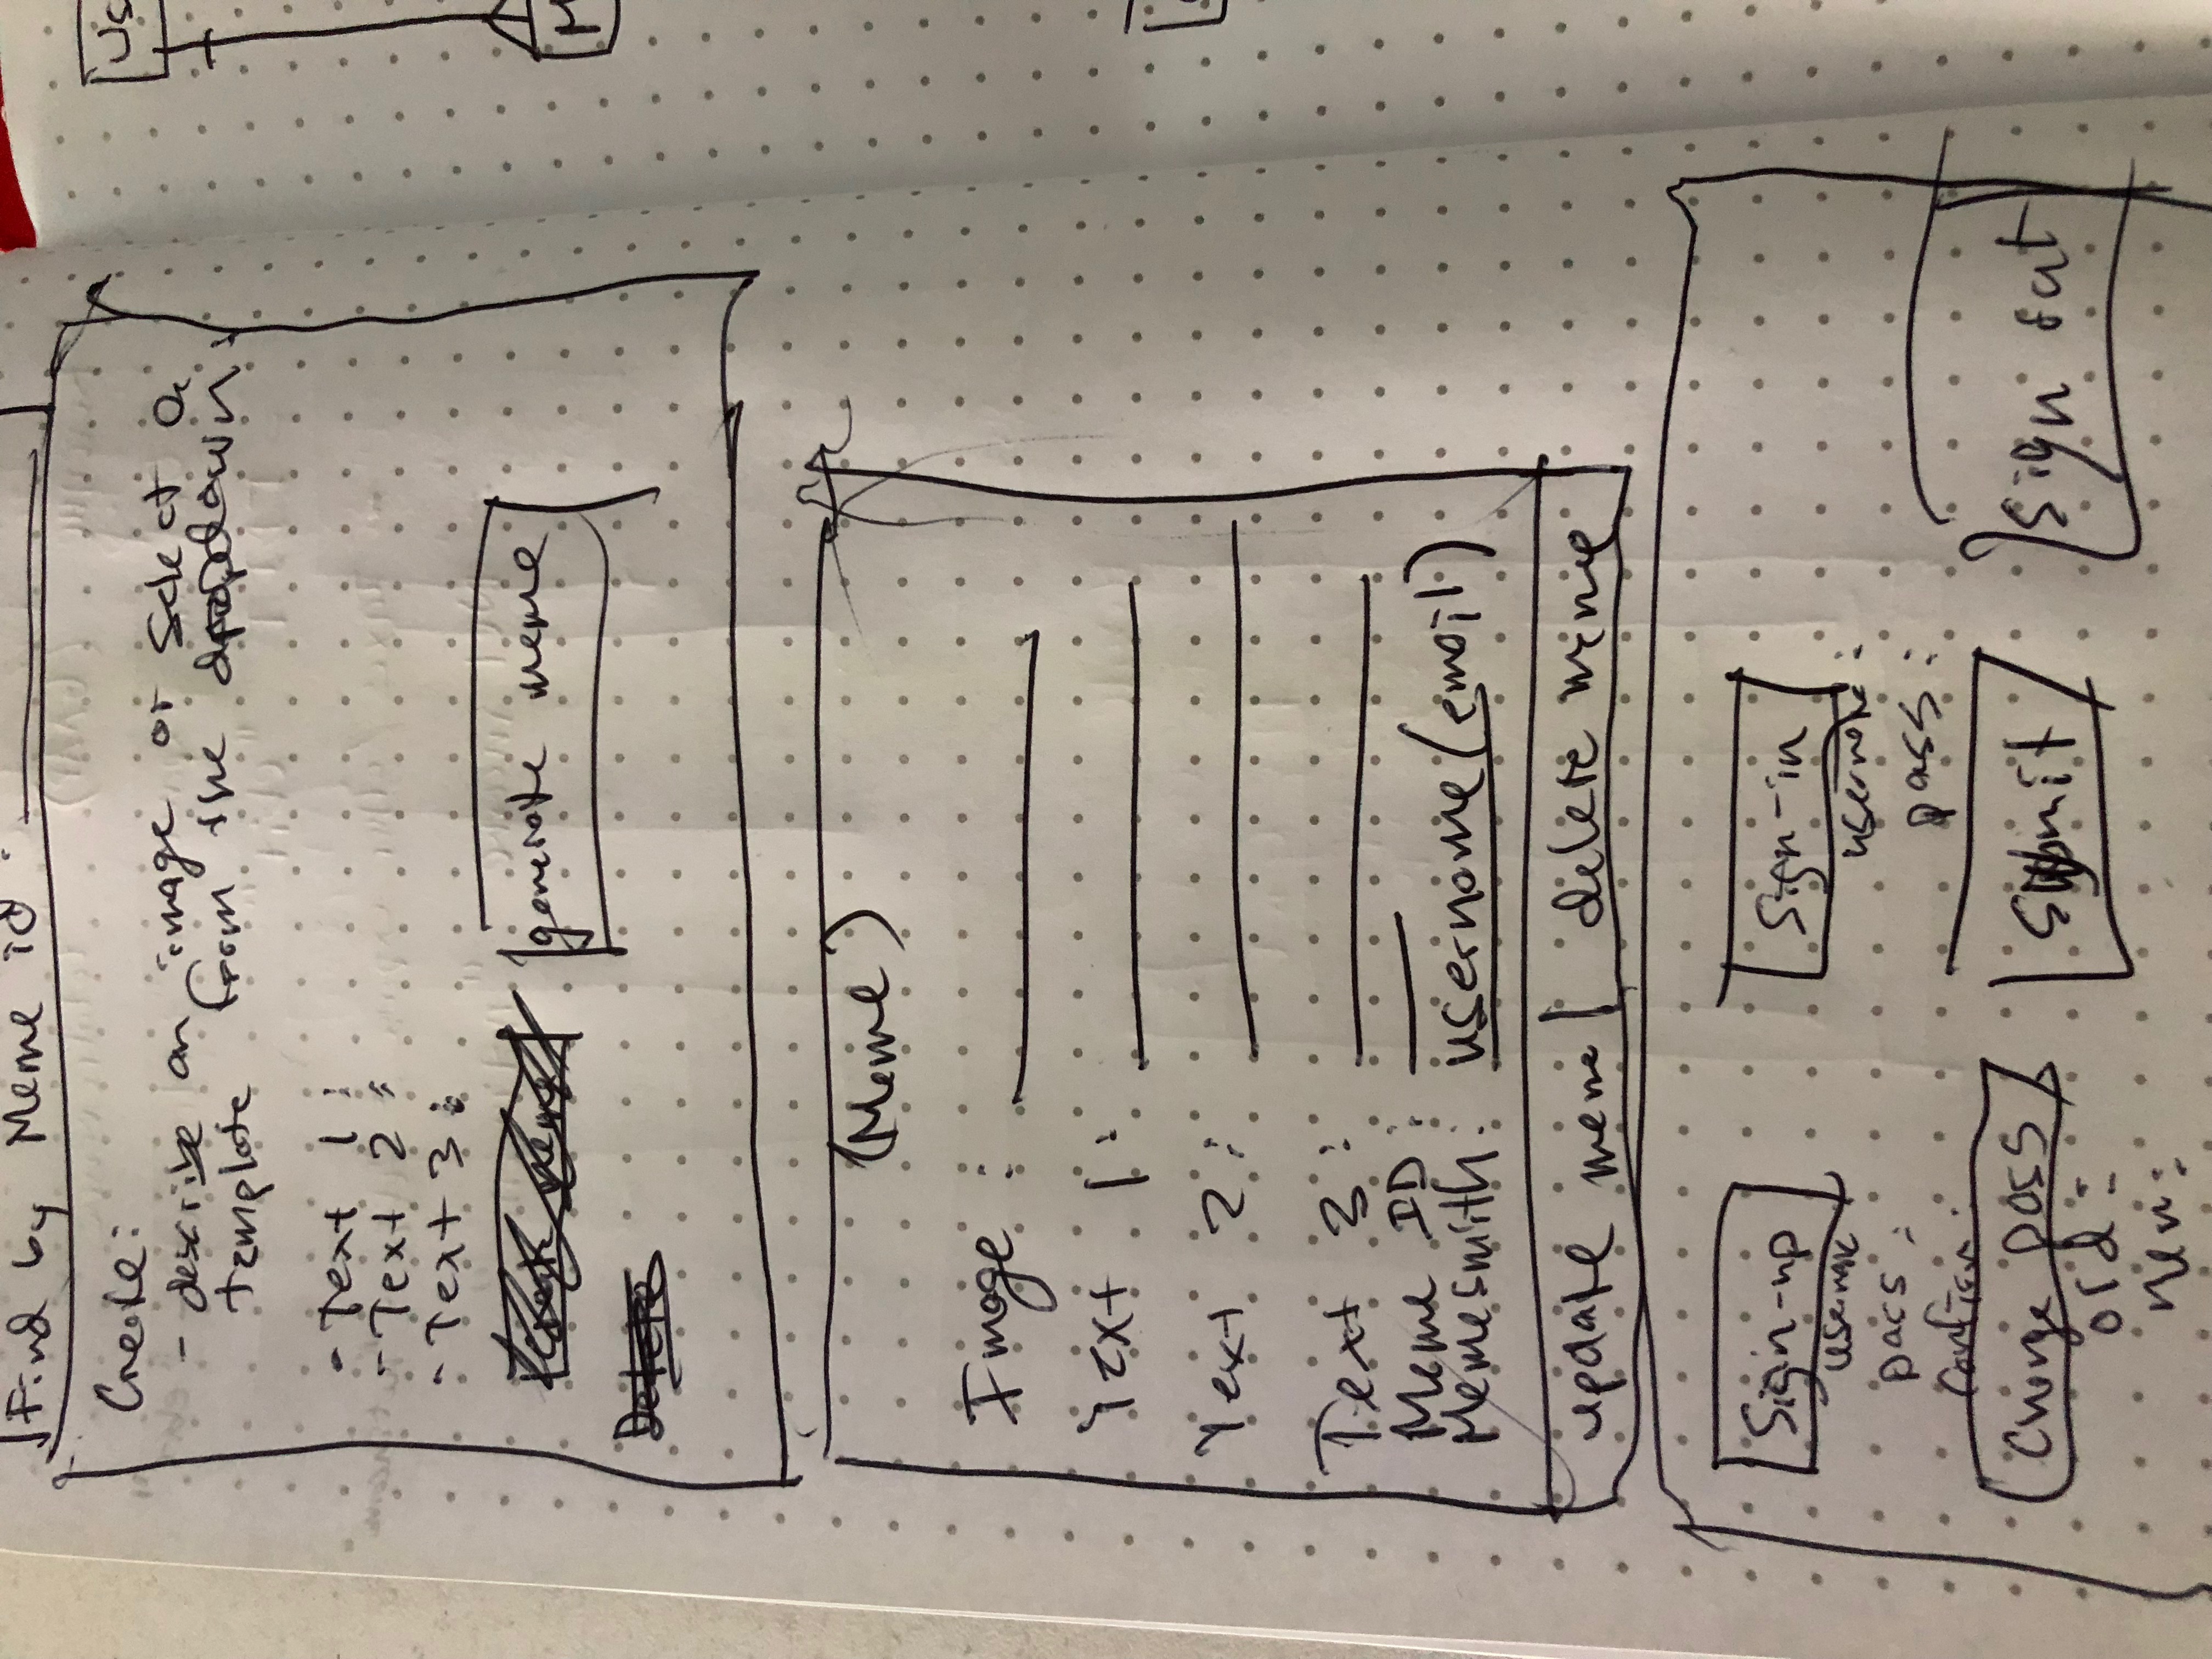 Find by Meme id :
Create:
- describe an image or select a
template from the dropdown:
- Text 1 :
- Text 2 :
- Text 3 :
generate meme
Delete
(Meme)
Image :
Text 1 :
Text 2 :
Text 3 :
Meme ID :
Memesmith: username (email)
update meme | delete meme
Sign-up
Sign-in
username :
pass :
pass :
Change pass
Submit
Sign out
old :
new :
Us
M